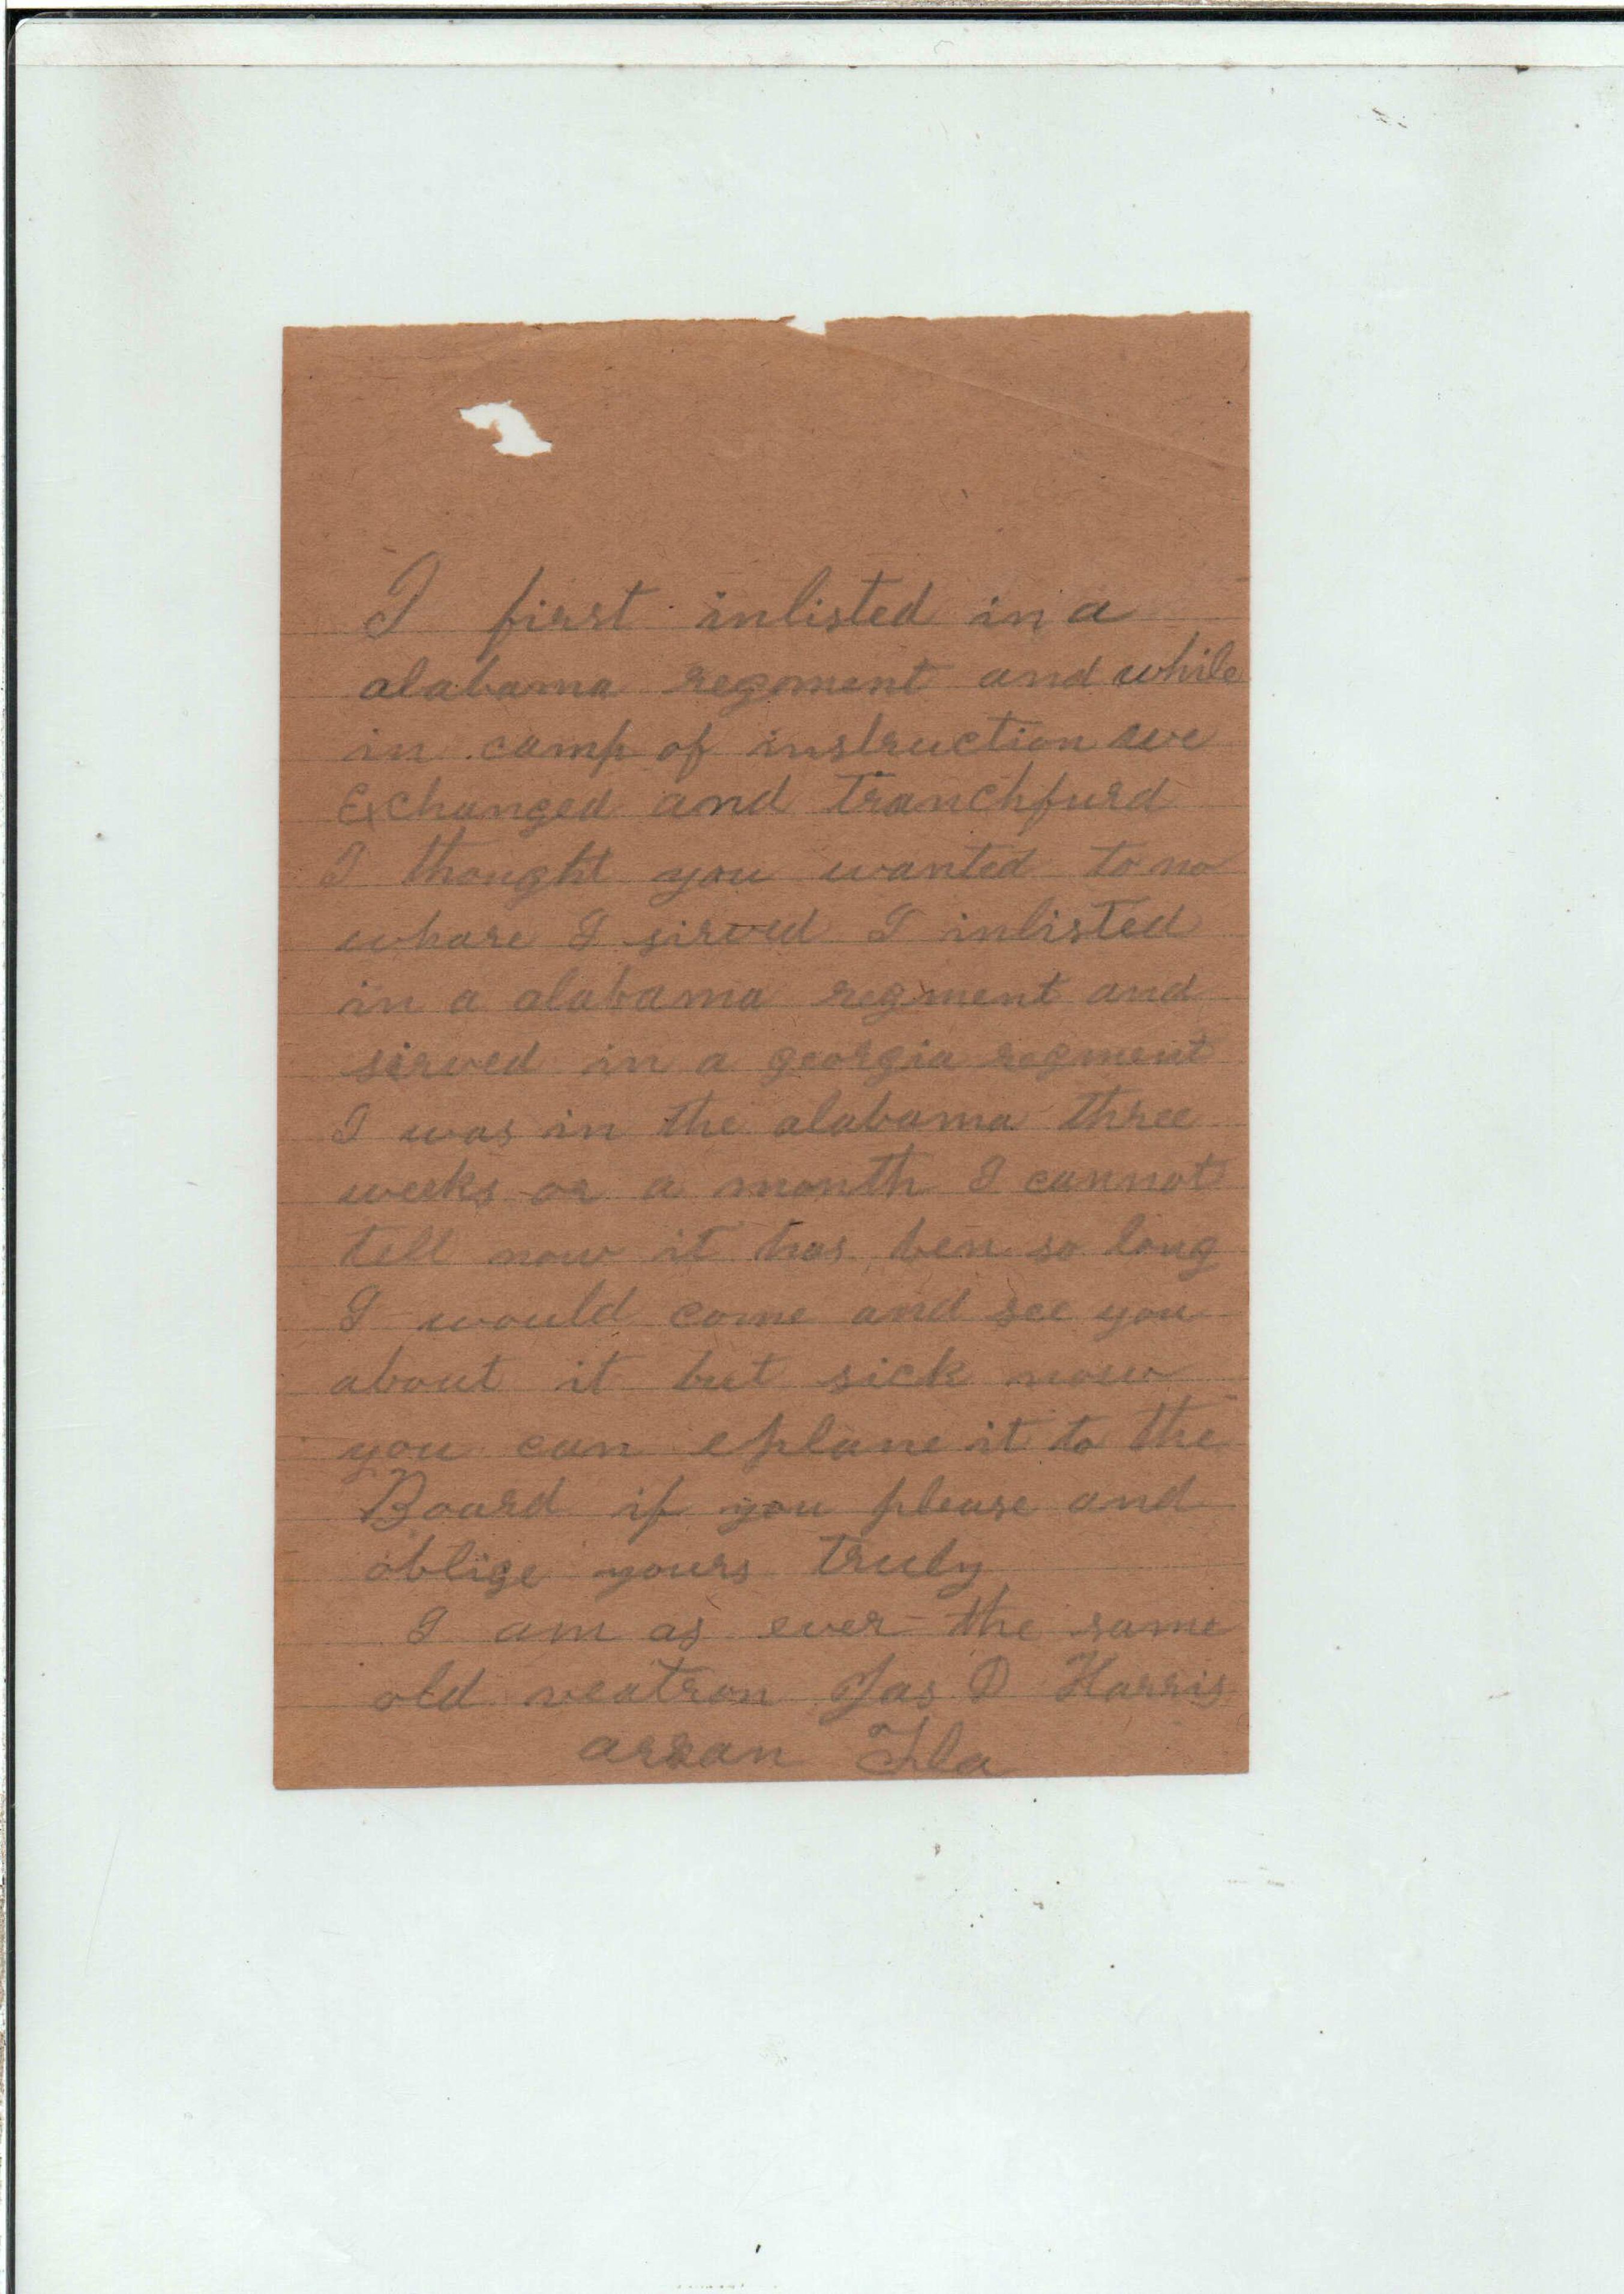 I first inlisted in a
alabama regment and while
in camp of instruction we
Exchanged and tranchfurd
I thought you wanted to no
whare I sirved I inlisted
in a alabama regment and
sirved in a georgia regment
I was in the alabama three
weeks or a month I cannot
tell now it has ben so long
I would come and see you
about it but sick now
you can eplane it to the
Board if you please and
oblige yours truly
I am as ever the same
old veatron Jas D Harris
arran Fla